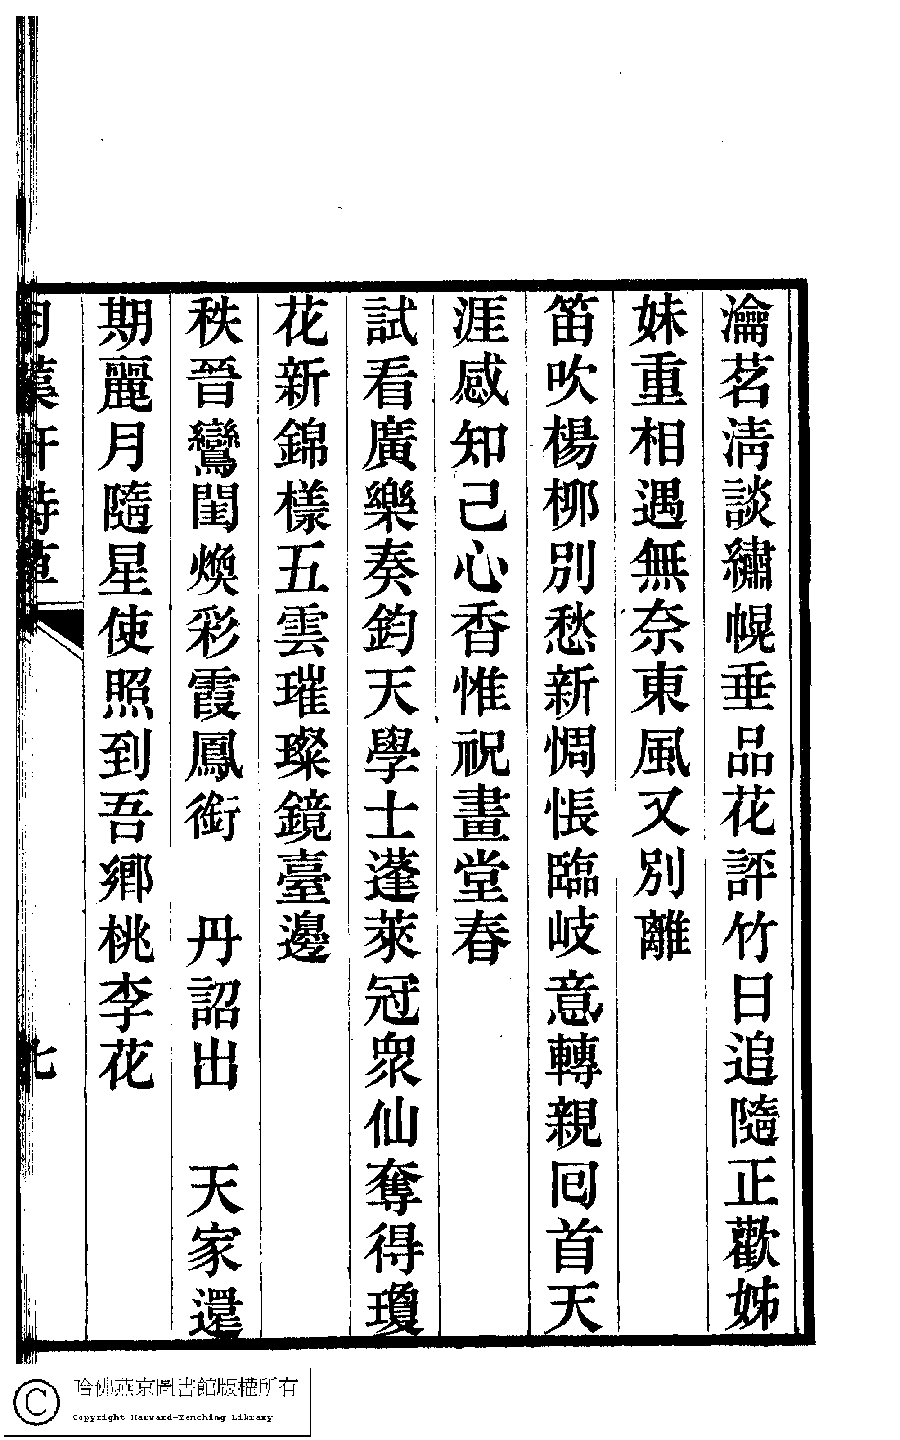 瀹茗清談繡幌垂品花評竹日追隨正歡姊
妹重相遇無奈東風又別離
笛吹楊柳別愁新惆悵臨岐意轉親囘首天
涯感知己心香惟祝畫堂春
試看廣樂奏鈞天學士蓬萊冠衆仙奪得瓊
花新錦樣五雲璀璨鏡臺邊
秩晉鸞閨煥彩霞鳳銜 丹詔出 天家還
期麗月隨星使照到吾鄉桃李花
軒詩草
七
哈佛燕京圖書館版權所有
Copyright Harvard-Yenching Library